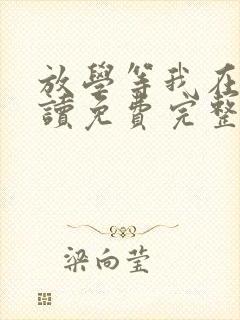 放學等我在
讀免費完整
梁向莹